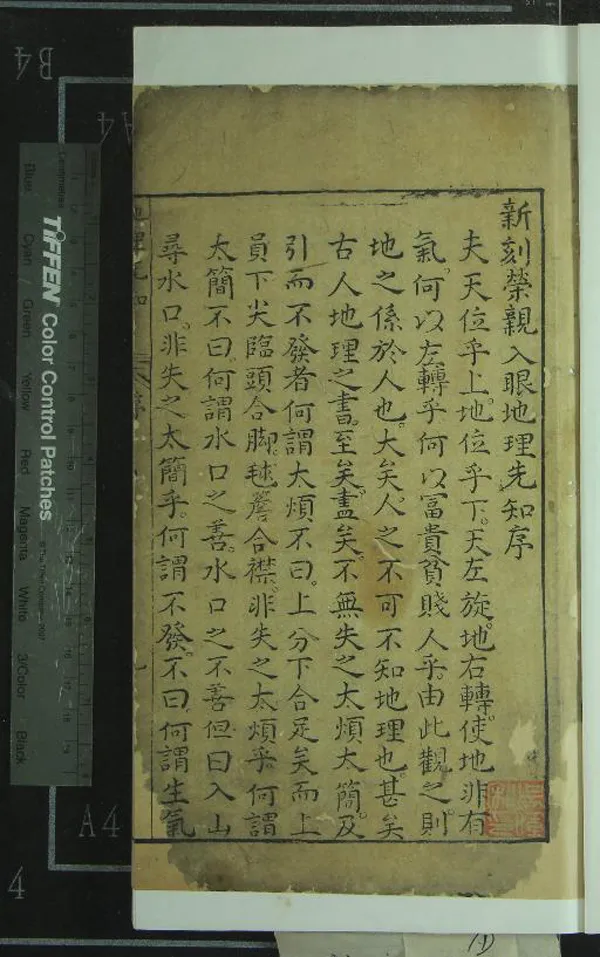 新刻榮親入眼地理先知序
夫天位乎上。地位乎下。天左旋。地右轉。使地非有
氣。何以左轉乎。何以冨貴貧賤人乎。由此觀之。則
地之係於人也。大矣。人之不可不知地理也。甚矣
古人地理之書。至矣盡矣。不無失之太煩太簡。及
引而不發者。何謂太煩。不曰。上分下合足矣。而上
員下尖。臨頭合脚。毬簷合襟。非失之太煩乎。何謂
太簡。不曰。何謂水口之善。水口之不善。但曰入山
尋水口。非失之太簡乎。何謂不發。不曰。何謂生氣
TIFFEN Color Control Patches
Blue
Cyan
Green
Yellow
Red
Magenta
White
3/Color
Black
Centimetres
B4
A4
A4
4